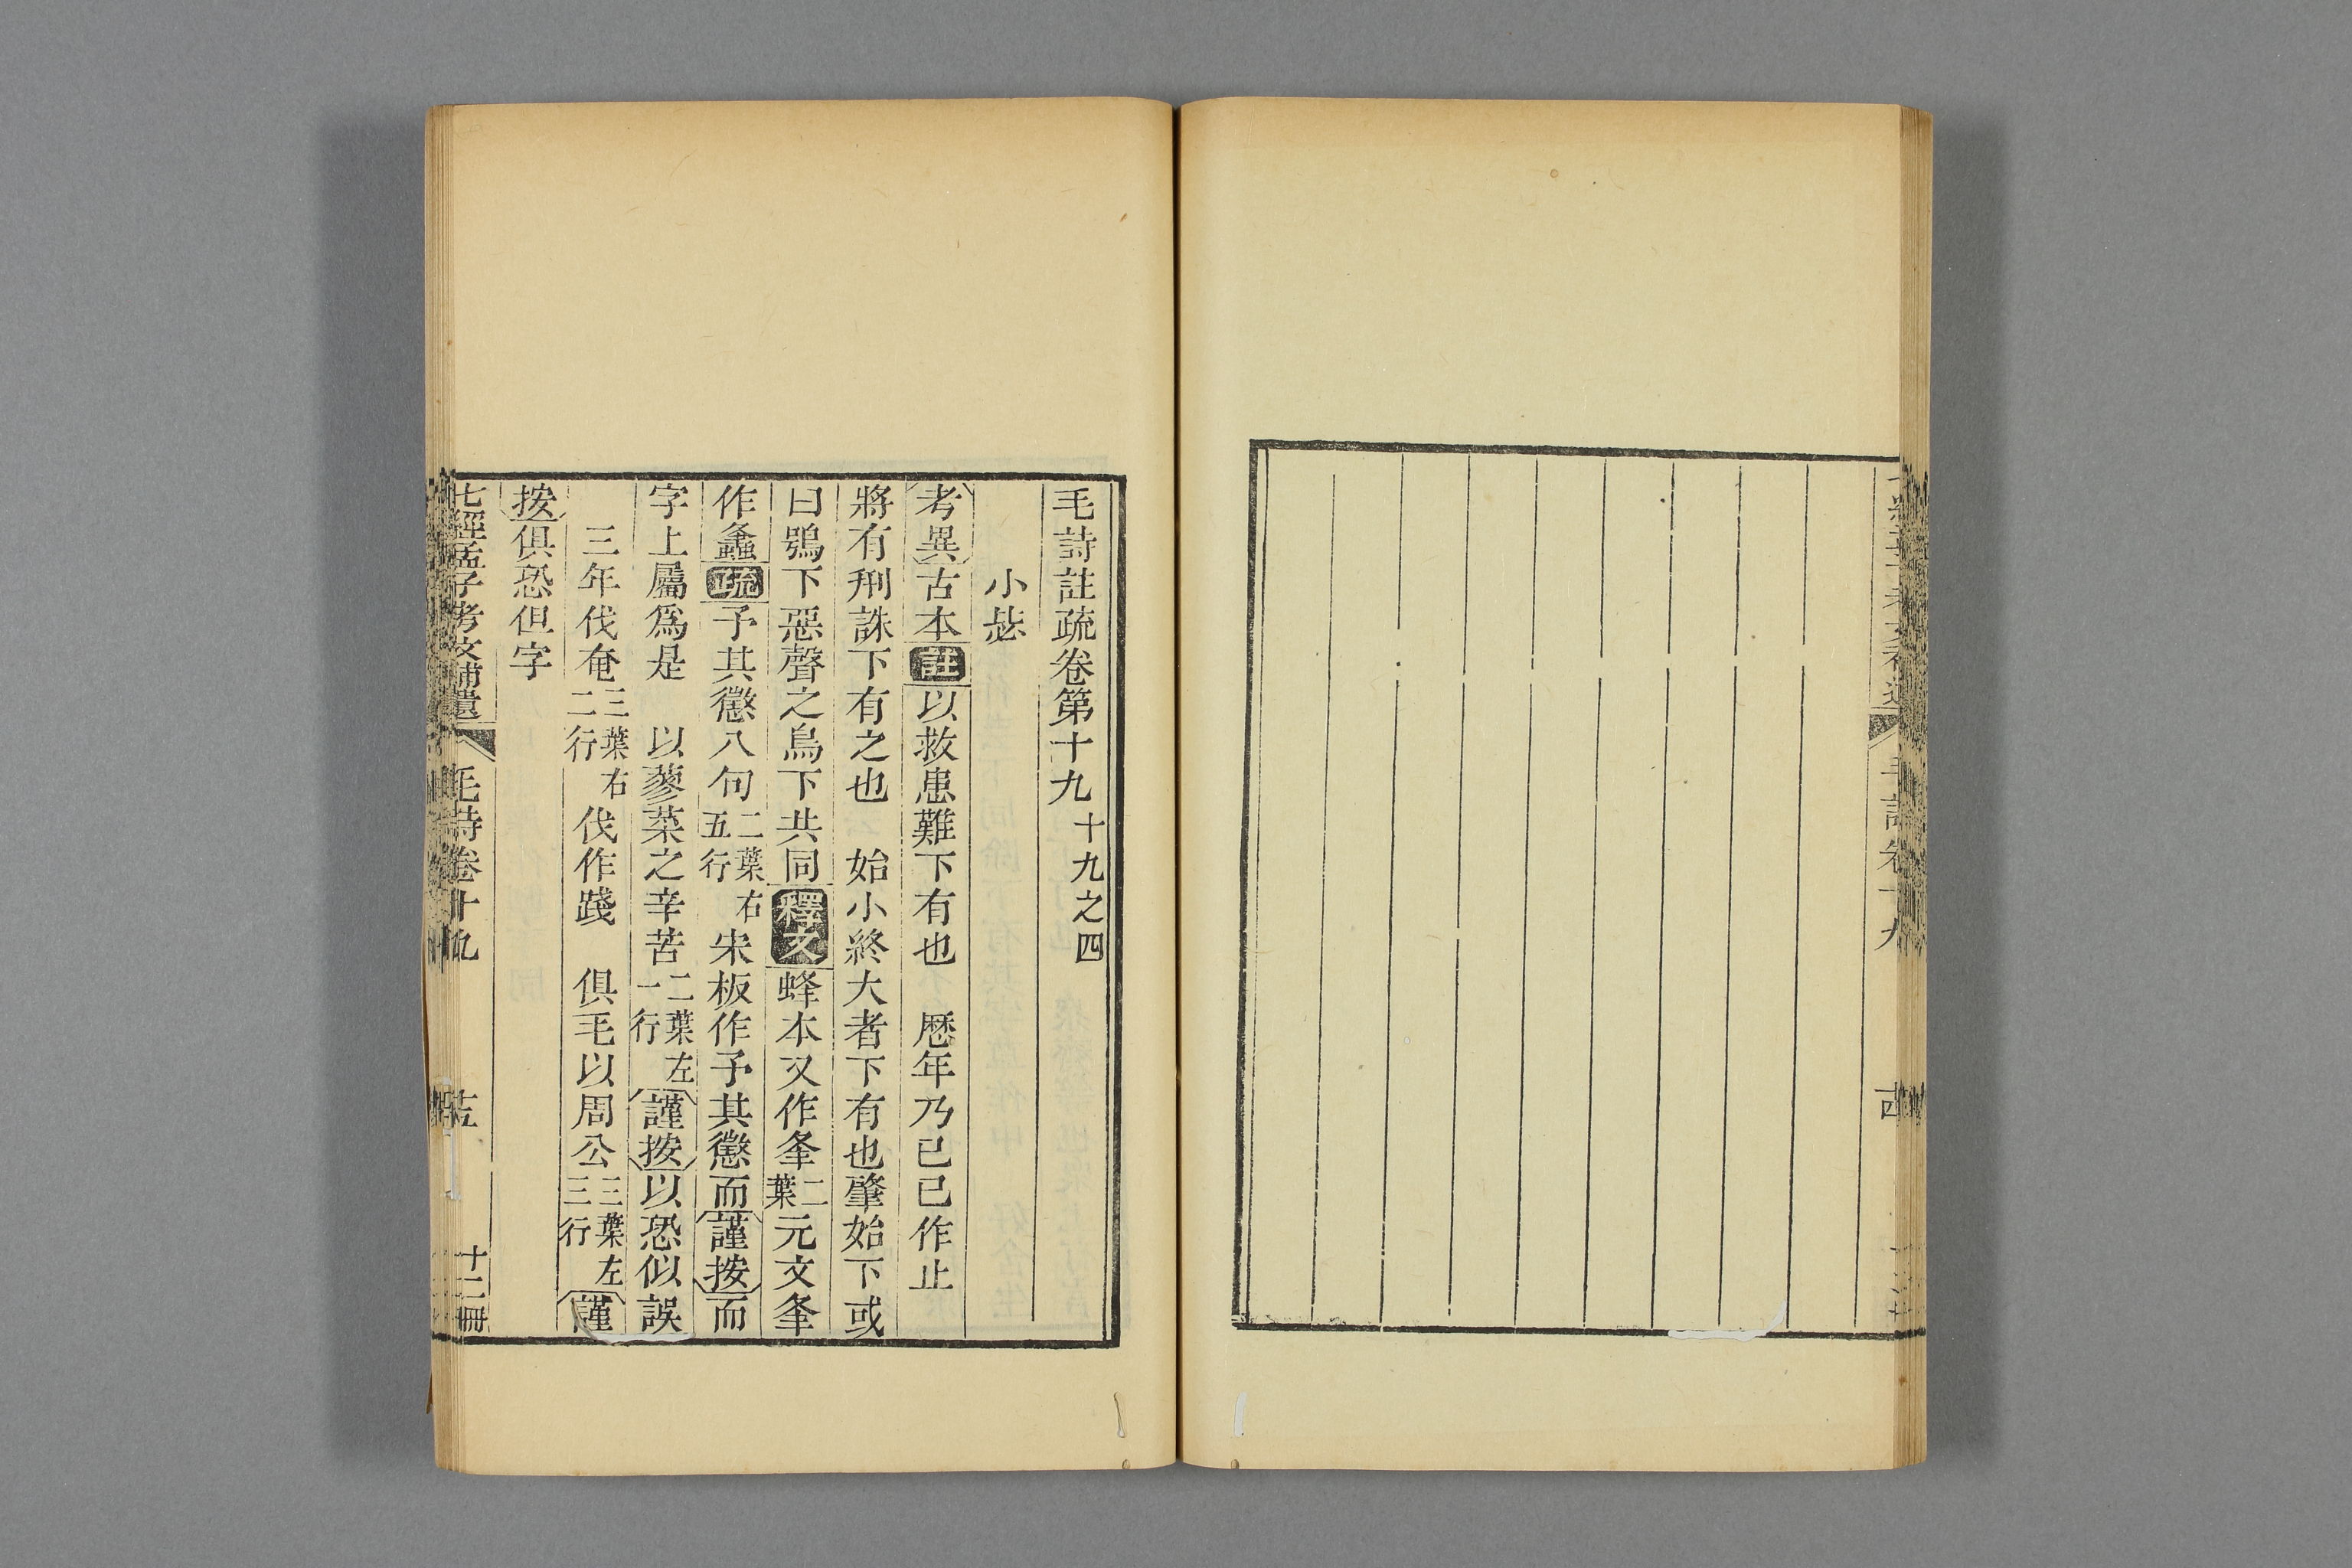 毛詩註疏卷第十九 十九之四
小毖
考異古本註以救患難下有也　歷年乃已已作止
將有刑誅下有之也　始小終大者下有也肇始下或
曰鴞下惡聲之鳥下共同釋文蜂本又作夆二葉元文夆
作螽疏予其懲八句二葉右五行宋板作予其懲而謹按而
字上屬爲是　以蓼菜之辛苦二葉左一行謹按以恐似誤
三年伐奄三葉右二行伐作踐　俱毛以周公三葉左三行謹
按俱恐但字
七經孟子考文補遺 毛詩卷十九 十五 十二冊